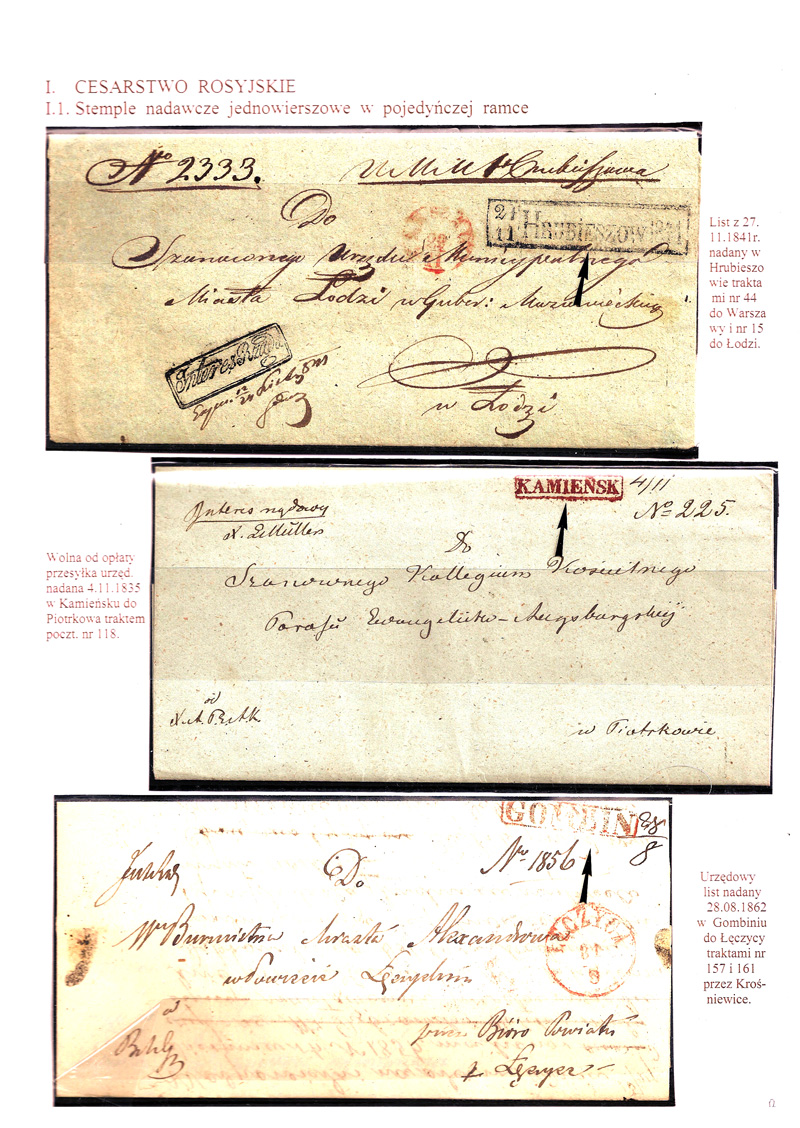 I. CESARSTWO ROSYJSKIE
I.1. Stemple nadawcze jednowierszowe w pojedyńczej ramce
No 2333.
Do
27 HRUBIESZOW 1841
11
Szanownego Urzędu Municypalnego
Miasta Łodzi w Guber: Mazowieckiej
Interes Rząd.
w Łodzi
List z 27.
11.1841r.
nadany w
Hrubieszo
wie trakta
mi nr 44
do Warsza
wy i nr 15
do Łodzi.
KAMIEŃSK 4/11
No 225.
Interes rządowy
Do
Szanownego Kollegium Kościelnego
Parafii Ewangelicko-Augsburgskiej
od
w Piotrkowie.
Wolna od opłaty
przesyłka urzęd.
nadana 4.11.1835
w Kamieńsku do
Piotrkowa traktem
poczt. nr 118.
GOMBIN 28/8
No 1856
Do
Wo Burmistrza Miasta Alexandrowa
w Powiecie
ŁĘCZYCA
8
przez Biuro Powiatu
w Łęczyce
Urzędowy
list nadany
28.08.1862
w Gombiniu
do Łęczycy
traktami nr
157 i 161
przez Kroś-
niewice.